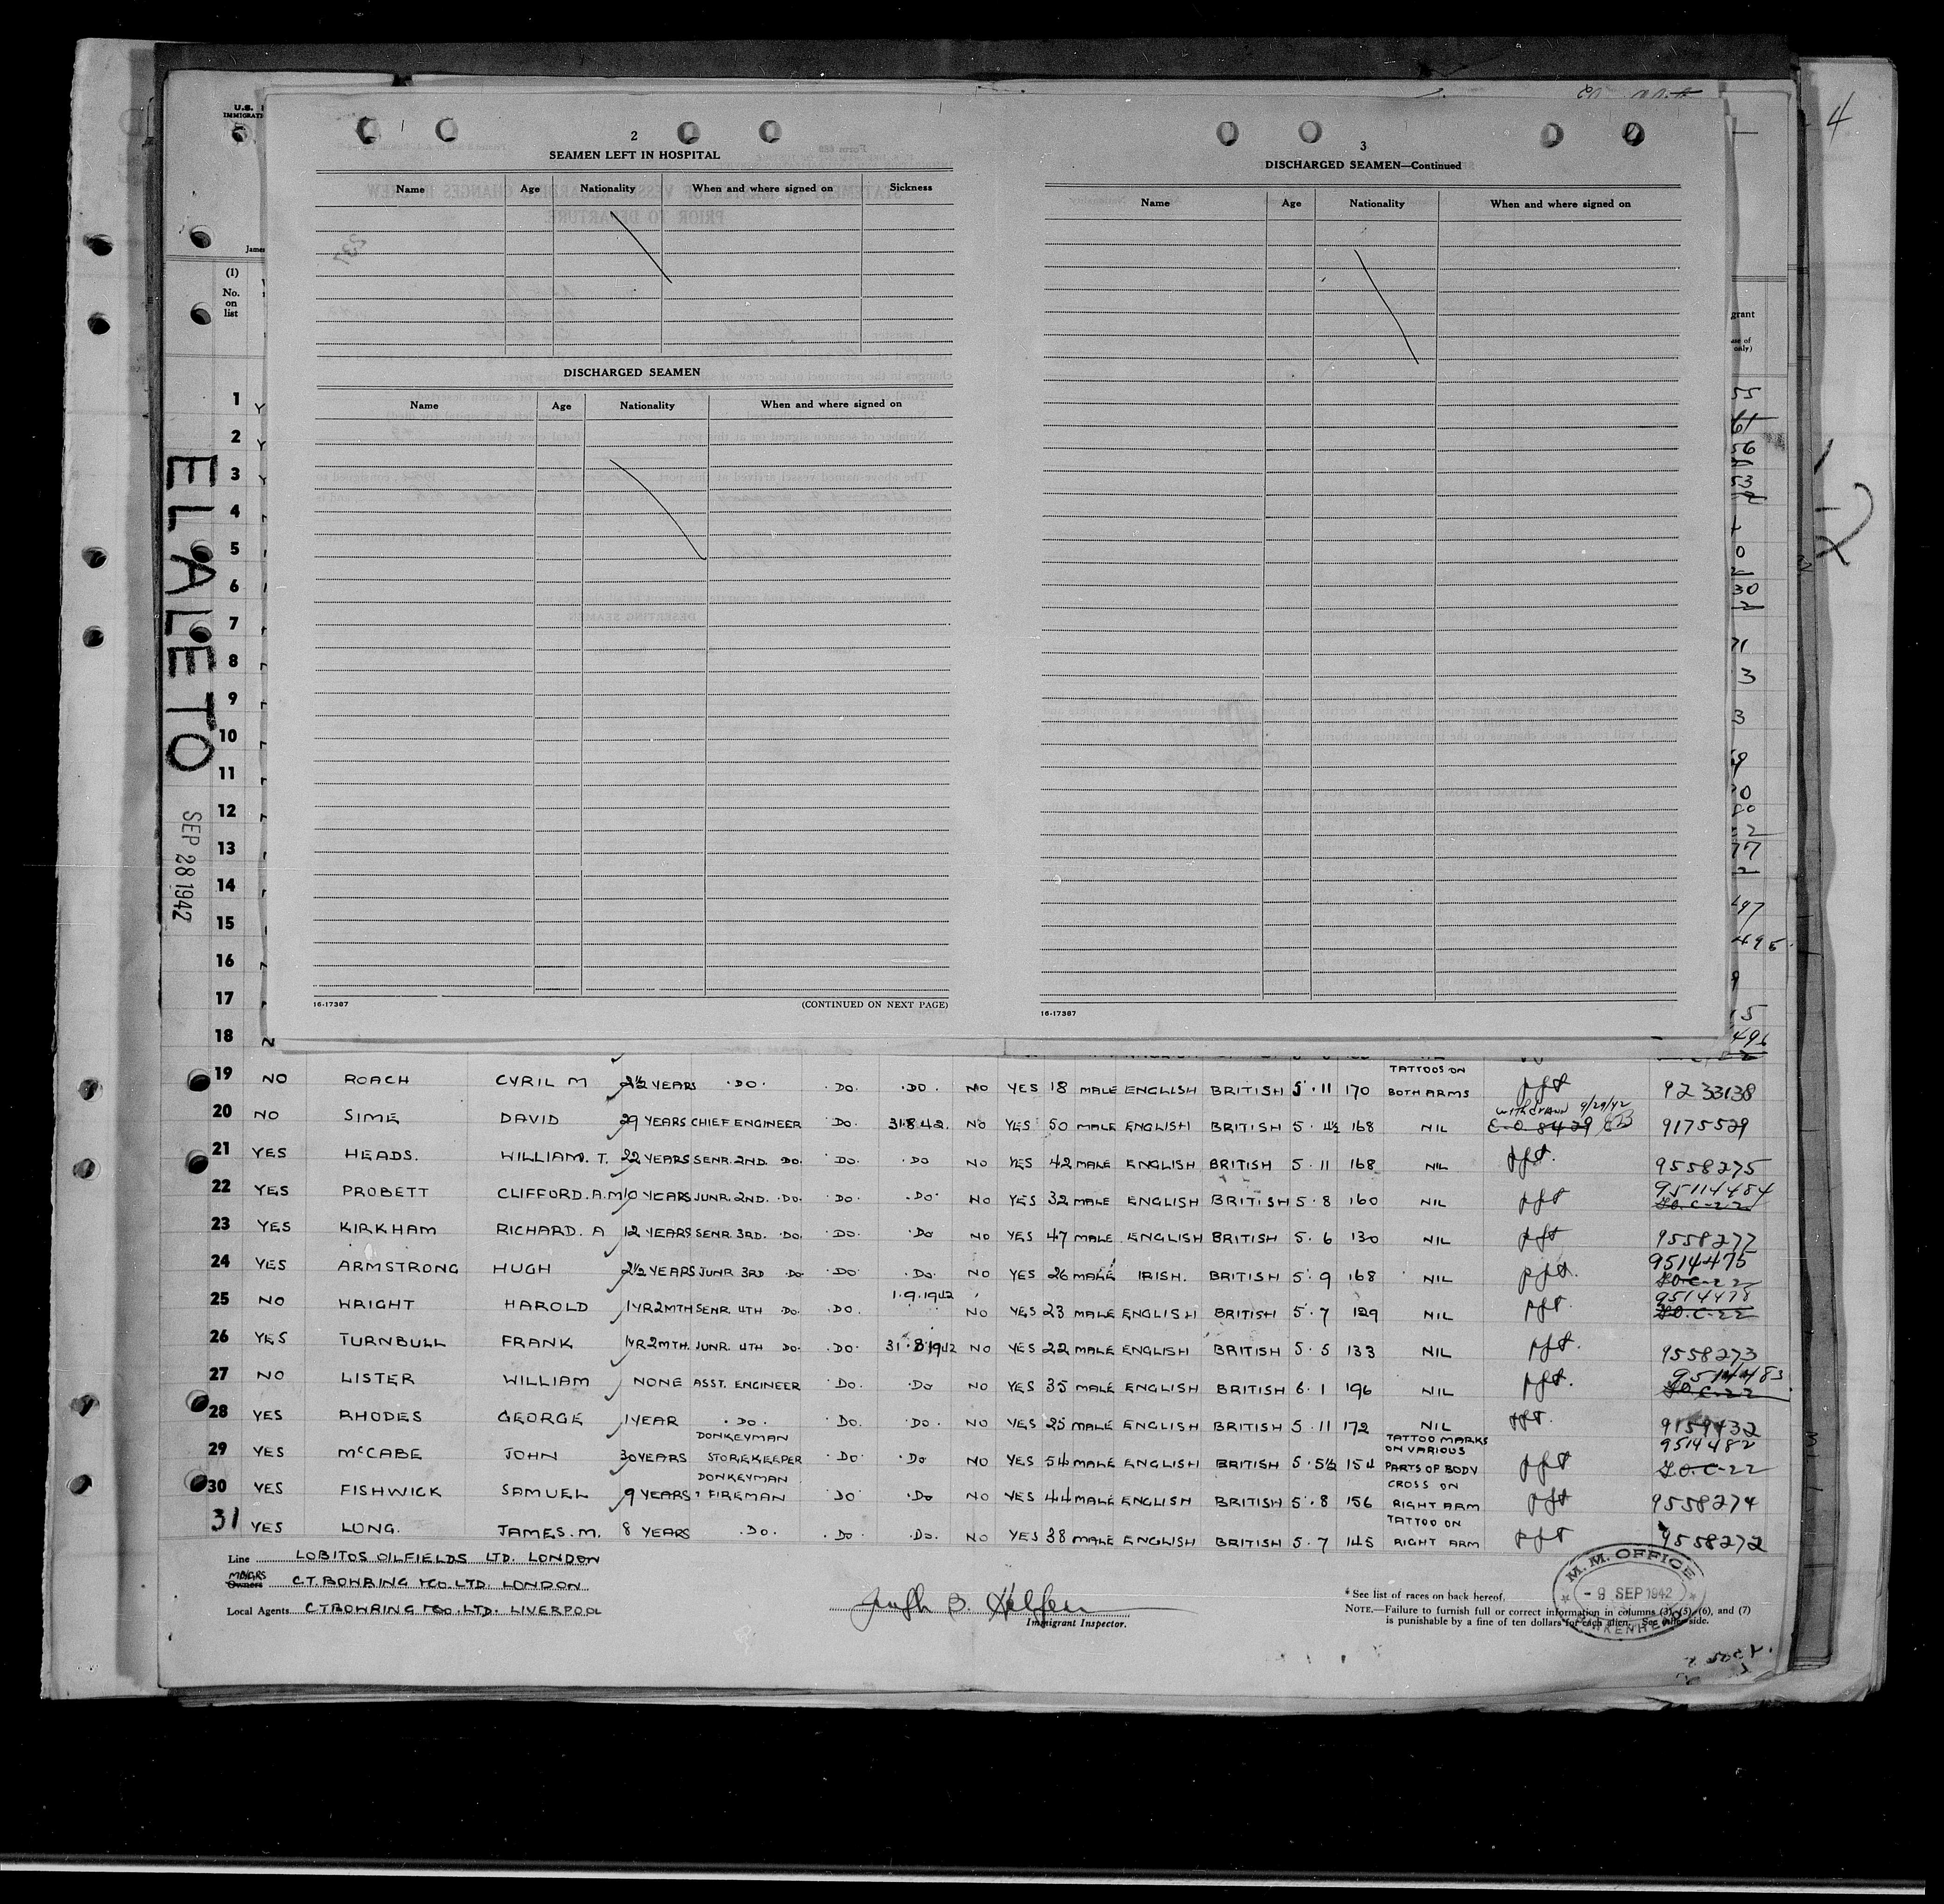 4
U.S. I
IMMIGRATI
2
SEAMEN LEFT IN HOSPITAL
Name Age Nationality When and where signed on Sickness
DISCHARGED SEAMEN
Name Age Nationality When and where signed on
16-17387 (CONTINUED ON NEXT PAGE)
3
DISCHARGED SEAMEN—Continued
Name Age Nationality When and where signed on
16-17387
ELALETO
SEP 28 1942
James
(1)
No.
on
list
grant
only)
1
2
3
4
5
6
7
8
9
10
11
12
13
14
15
16
17
18
19 NO ROACH CYRIL M 2½ YEARS .DO. .DO. .DO. NO YES 18 MALE ENGLISH BRITISH 5.11 170 TATTOOS ON BOTH ARMS pft 9233138
20 NO SIME DAVID 29 YEARS CHIEF ENGINEER DO. 31.8.42. NO YES 50 MALE ENGLISH BRITISH 5.4½ 168 NIL withdrawn 9/29/42 E.O. 8429 9175529
21 YES HEADS. WILLIAM. T. 22 YEARS SENR. 2ND. DO. .DO. .DO NO YES 42 MALE ENGLISH BRITISH 5.11 168 NIL pft. 9558275
22 YES PROBETT CLIFFORD.A.M 10 YEARS JUNR. 2ND. .DO. .DO. .DO. NO YES 32 MALE ENGLISH BRITISH 5.8 160 NIL pft 95114484
23 YES KIRKHAM RICHARD. A 12 YEARS SENR. 3RD. .DO. .DO. .DO NO YES 47 MALE. ENGLISH BRITISH 5.6 130 NIL pft 9558277
24 YES ARMSTRONG HUGH 2½ YEARS JUNR 3RD DO .DO. .DO. NO YES 26 MALE IRISH. BRITISH 5.9 168 NIL pft. 9514475
25 NO WRIGHT HAROLD 1YR2MTH SENR. 4TH DO. .DO. 1.9.1942 NO YES 23 MALE ENGLISH BRITISH 5.7 129 NIL pft. 9514478
26 YES TURNBULL FRANK 1YR2MTH. JUNR. 4TH DO. .DO. 31.8.1942 NO YES 22 MALE ENGLISH BRITISH 5.5 133 NIL pft. 9558273
27 NO LISTER WILLIAM NONE ASST. ENGINEER DO. .DO NO YES 35 MALE ENGLISH BRITISH 6.1 196 NIL pft. 9514483
28 YES RHODES GEORGE 1 YEAR .DO. DO. .DO. NO YES 25 MALE ENGLISH BRITISH 5.11 172 NIL pft. 9159432
29 YES McCABE JOHN 30 YEARS DONKEYMAN STOREKEEPER .DO .DO NO YES 54 MALE ENGLISH BRITISH 5.5½ 154 TATTOO MARKS ON VARIOUS PARTS OF BODY pft 9514482
30 YES FISHWICK SAMUEL 9 YEARS DONKEYMAN FIREMAN DO .DO NO YES 44 MALE ENGLISH BRITISH 5.8 156 CROSS ON RIGHT ARM pft 9558274
31 YES LONG. JAMES. M. 8 YEARS .DO. .DO. .DO. NO YES 38 MALE ENGLISH BRITISH 5.7 145 TATTOO ON RIGHT ARM pft 9558272
Line LOBITOS OILFIELDS LTD. LONDON
Owners C.T. BOWRING & CO. LTD. LONDON
Local Agents C T BOWRING & CO. LTD. LIVERPOOL
Immigrant Inspector.
* See list of races on back hereof.
NOTE.—Failure to furnish full or correct information in columns (3), (5), (6), and (7)
is punishable by a fine of ten dollars for each alien. See other side.
M. M. OFFICE
- 9 SEP 1942